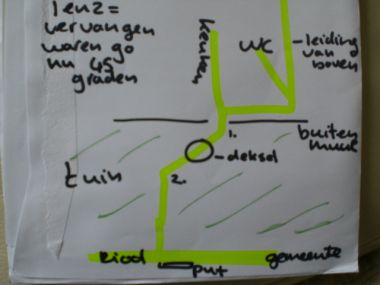 1 en 2 =
vervangen
waren 90
nu 45
graden
keuken
WC
-leiding
van
boven
1.
buiten
muur
-deksel
tuin
2.
riool
gemeente
put